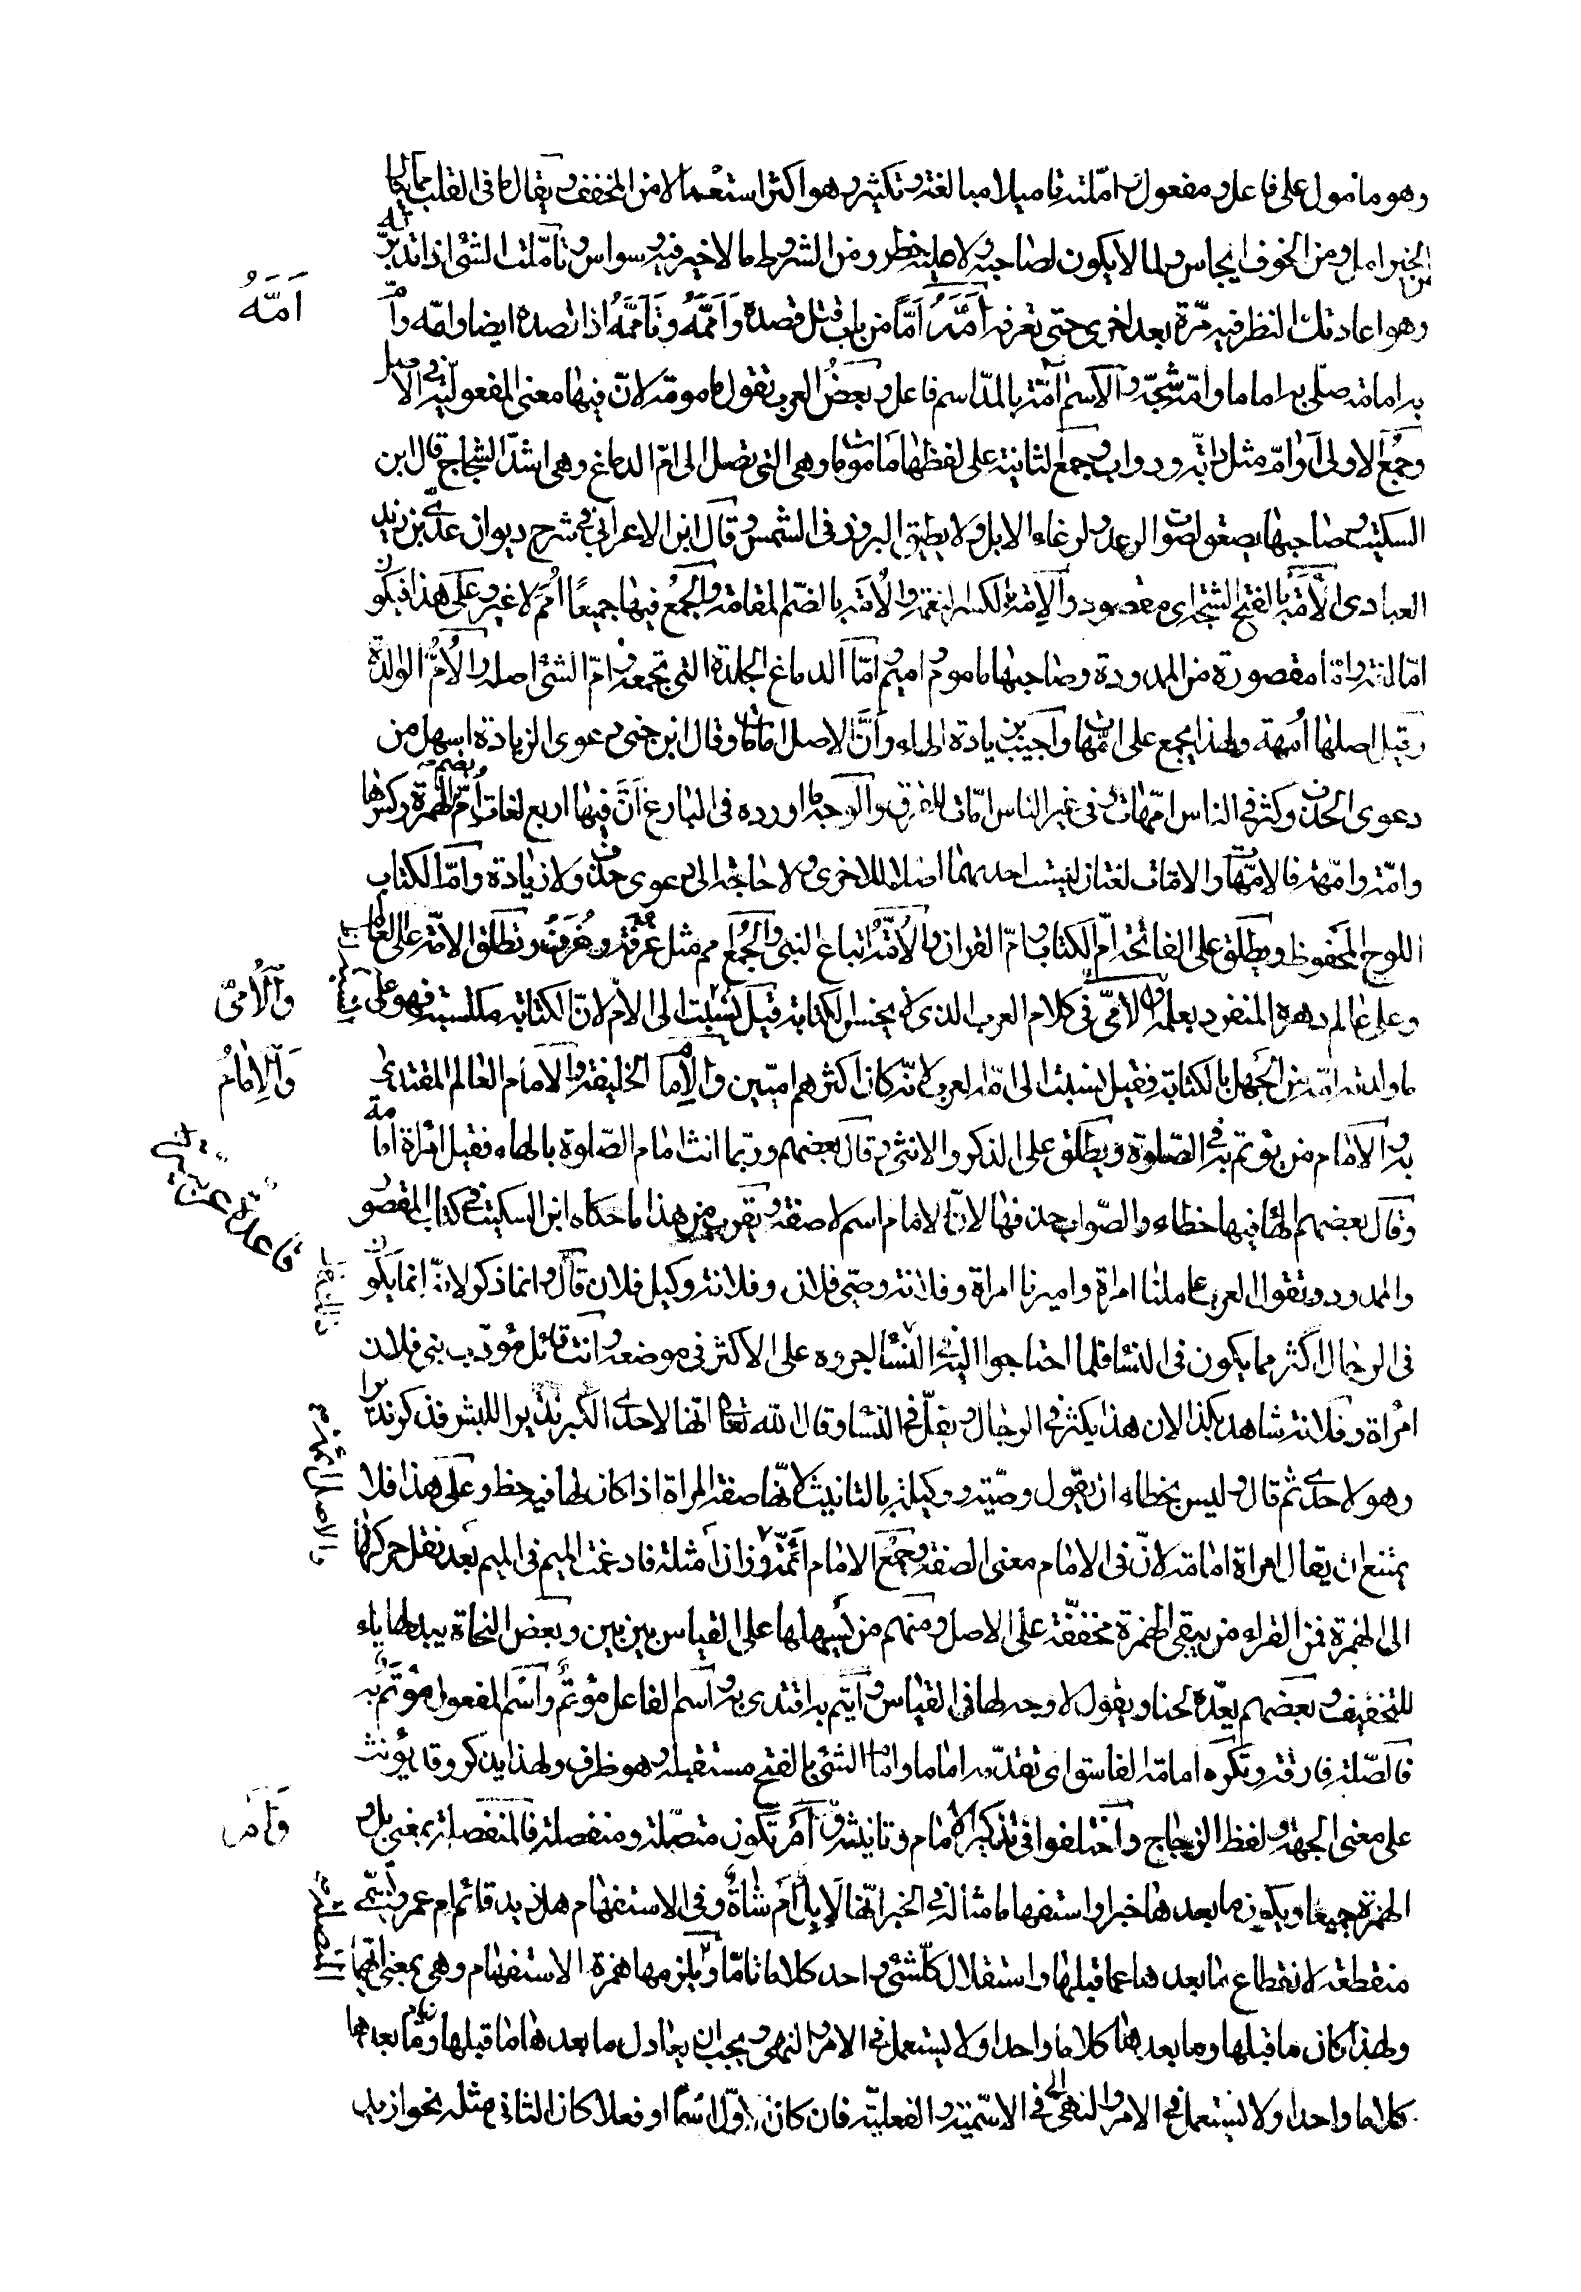 وهو مامول على فاعل ومفعول واملته تاميلا مبالغة وتكثير وهو اكثر استعمالا من المخفف ويقال لما في القلب مما ينال
من الخير امل ومن الخوف ايجاس ولما لا يكون لصاحبه ولا عليه خطر ومن الشر وما لا خير فيه وسواس وتأمّلت الشئ اذا تدبرته
وهو اعادتك النظر فيه مرّة بعد اخرى حتى تعرفه اَمَّهُ اَمًّا من باب قتل قصده وَاَمَّمَهُ وَتَأَمَّمَهُ اذا قصده ايضا وامّه وامّ
اَمَّهُ
به امامة صلى به اماما وامّه شجّه والاسم آمّة بالمدّ اسم فاعل وبعض العرب تقول مامومة لانّ فيها معنى المفعوليّة في الاصل
وجمع الاولى اوامّ مثل دابّة ودواب وجمع الثانية على لفظها مامومات وهي التي تصل الى امّ الدماغ وهي اشدّ الشجاج قال ابن
السكيت وصاحبها يصعق لصوت الرعد ولرغاء الابل ولا يطيق البروز في الشمس وقال ابن الاعرابي في شرح ديوان عدىّ بن زيد
العبادى الاَمّة بالفتح الشجة اى مقصود والاِمّة بالكسر النعمة والاُمّة بالضم القامة والجمع فيها جميعًا اُمَم لا غير وعلى هذا فيكون
امّا لغة وامّا مقصورة من الممدودة وصاحبها ماموم واميم وامّ الدماغ الجلدة التي تجمعه وامّ الشئ اصله والاُمّ الوالدة
وقيل اصلها اُمهة ولهذا يجمع على امّهات واجيب بزيادة الهاء وانّ الاصل امات وقال ابن جنى دعوى الزيادة اسهل من
دعوى الحذف وكثر في الناس امّهات وفي غير الناس امّات للفرق والوجه ما اورده في البارع انّ فيها اربع لغات اُمّ بضم الهمزة وكسرها
وامّة وامّهة فالامّهات والامات لغتان ليست احديهما اصلا للاخرى ولا حاجة الى دعوى حذف ولا زيادة وامّ الكتاب
اللوح المحفوظ ويطلق على الفاتحة امّ الكتاب وامّ القران والاُمّة اتباع النبي والجمع امم مثل غرفة وغرف وتطلق الامّة على
وعلى عالم دهره المنفرد بعلمه والامّى في كلام العرب الذى لا يحسن الكتابة فقيل نسبة الى الامّ لانّ الكتابة مكتسبة فهو على
وَالاُمّىّ
ما ولدته امّه من الجهل بالكتابة وقيل نسبة الى امّة العرب لانّه كان اكثرهم اميّين والاِمام الخليفة والامام العالم المقتدى
وَالاِمَامُ
به والامام من يؤتم به في الصلوة ويطلق على الذكر والانثى قال بعضهم وربّما انث امام الصّلوة بالهاء فقيل امراة امامة
وقال بعضهم الهاء فيها خطاء والصّواب حذفها لانّ الامام اسم لا صفة ويقرب من هذا ما حكاه ابن السكيت في كتاب المقصور
والممدود وتقول العرب عاملنا امراة واميرنا امراة وفلانة وصّى فلان وفلانة وكيل فلان قال وانما ذكر لانّه انما يكون
في الرجال اكثر مما يكون في النسا فلما احتاجوا اليه في النسا اجروه على الاكثر في موضعه وانت قائل مؤدّب بنى فلان
امراة وفلانة شاهد بكذا لان هذا يكثر في الرجال ويقلّ في النسا وقال الله تعالى انّها لاحدى الكبر نذيرا للبشر فذكر نذيرا
وهو لاحدى ثم قال وليس بخطاء ان يقول وصّية ووكيلة بالتانيث لانّها صفة المراة اذا كان لها فيه حظ وعلى هذا فلا
يمتنع ان يقال امراة امامة لانّ في الامام معنى الصفة وجمع الامام ائمّة وزان امثلة فادغمت الميم في الميم بعد نقل حركتها
الى الهمزة فمن القراء من يبقى الهمزة مخففّة على الاصل ومنهم من يسهلها على القياس بين بين وبعض النحاة يبدلها ياء
للتخفيف وبعضهم يعدّه لحنا ويقول لا وجه لها في القياس وايتم به اقتدى به واسم الفاعل مؤتمٌّ واسم المفعول مؤتَمٌّ به
فالصّلة فارقة وتكره امامة الفاسق اى تقدّمه اماما وامام الشئ بالفتح مستقبله وهو ظرف ولهذا يذكر وقد يؤنث
على معنى الجهة ولفظ الزجاج واختلفوا في تذكير الامام وتانيثه وَاَم تكون متصّلة ومنفصلة فالمنفصلة بمعنى بل و
وَاَم
الهمزة جميعا ويكون ما بعدها خبرا واستفهاما مثاله في الخبر انّها لاِبِلٌ اَم شاةٌ وفي الاستفهام هل زيد قائم ام عمرو وتسمّى
منقطعة لانقطاع ما بعدها عما قبلها واستقلال كلّ شئ واحد كلاما تامّا ويلزمها همزة الاستفهام وهي بمعنى ايّهما
ولهذا كان ما قبلها وما بعدها كلاما واحدا ولا يستعمل في الامر والنهى ويجب ان يعادل ما بعدها ما قبلها
كلاما واحدا ولا يستعمل في الامر والنهى في الاسميّة والفعليّة فان كان الاوّل اسمًا او فعلا كان الثاني مثله نحو ازيد